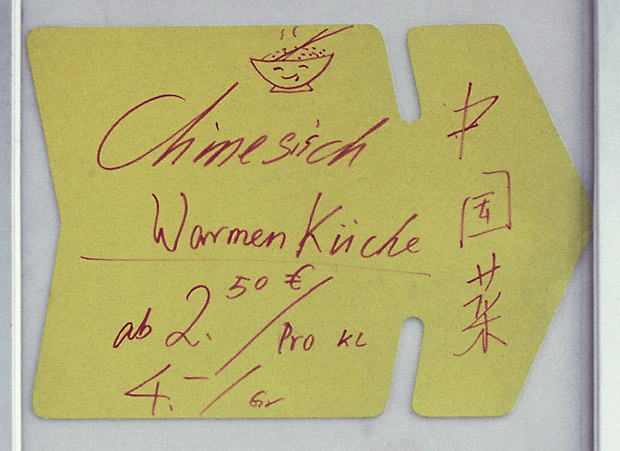 Chinesisch
Warmen Küche
ab 2.50€/Pro KL
4.-/Gr
中国菜